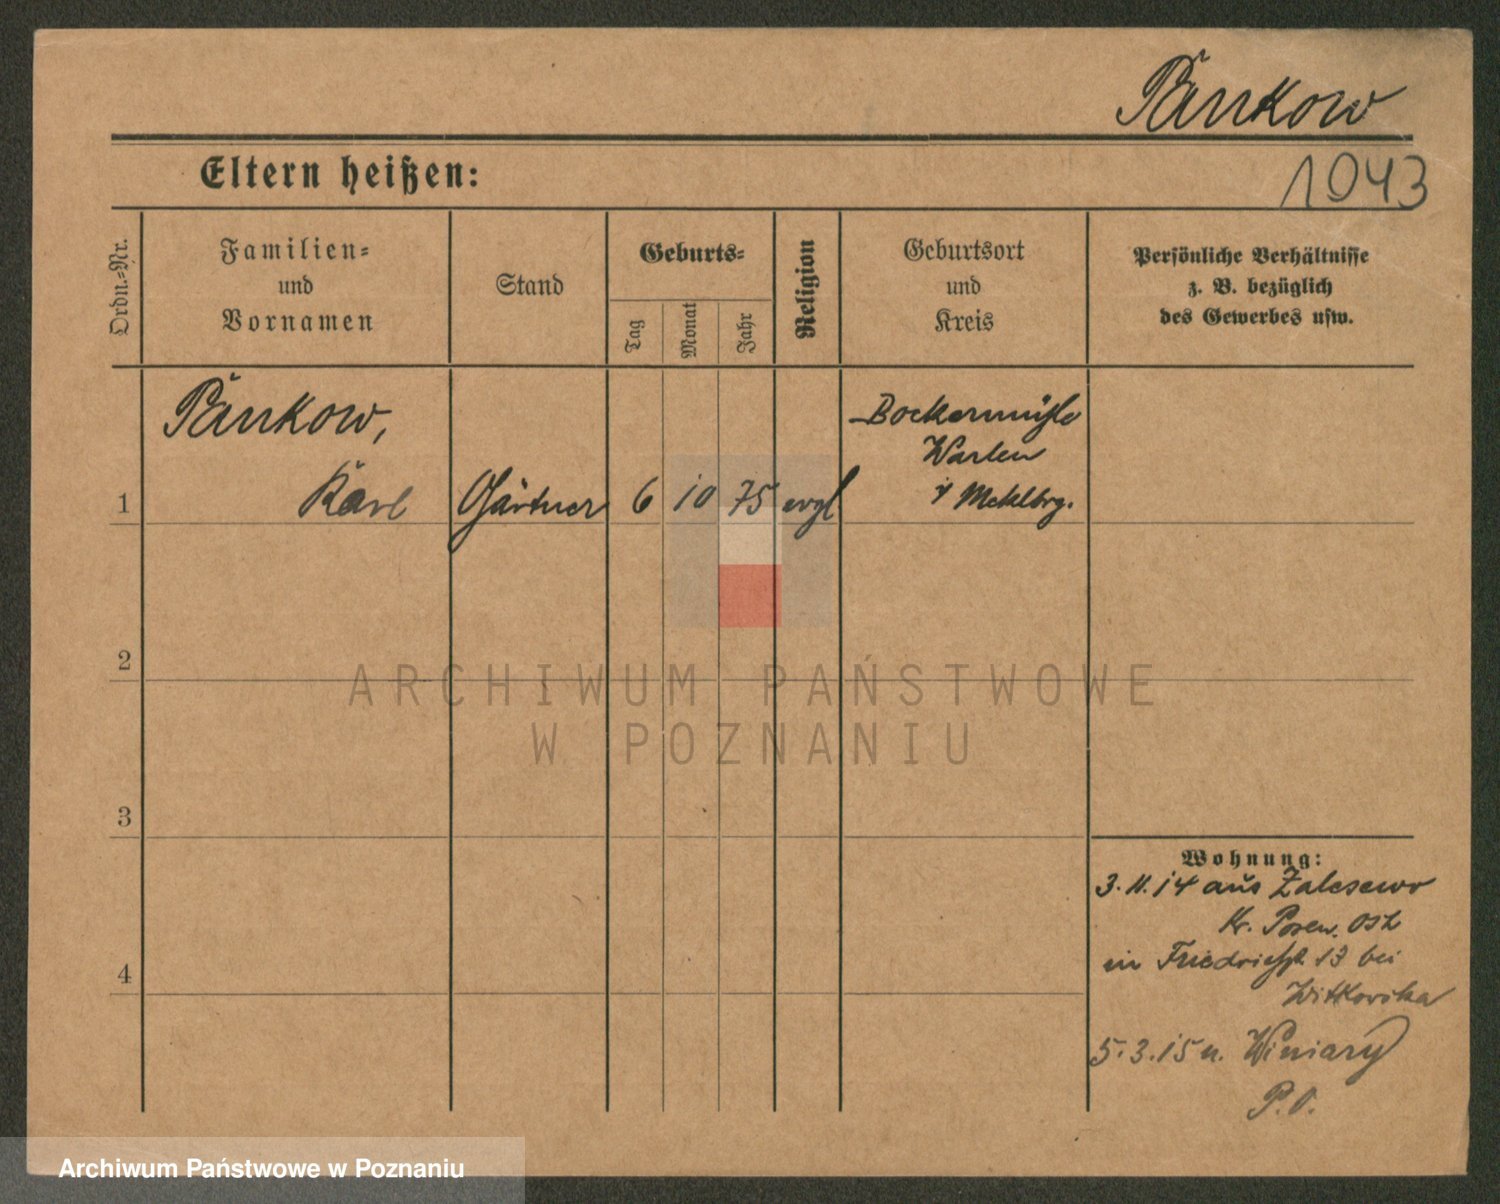 Pankow
1043
Eltern heißen:
Ordn.-Nr.
Familien-
und
Vornamen
Stand
Geburts-
Tag
Monat
Jahr
Religion
Geburtsort
und
Kreis
Persönliche Verhältnisse
z. B. bezüglich
des Gewerbes usw.
Pankow,
1 Karl Gärtner 6 10 75 evgl
Bockermühle
Warlen
i/ Meklbrg.
2
3
4
Wohnung:
3.11.14 aus Zalesewo
Kr. Posen. Ost
in Friedrichst. 13 bei
Witkowska
5.3.15 n. Winiary
P.O.
ARCHIWUM PAŃSTWOWE
W POZNANIU
Archiwum Państwowe w Poznaniu